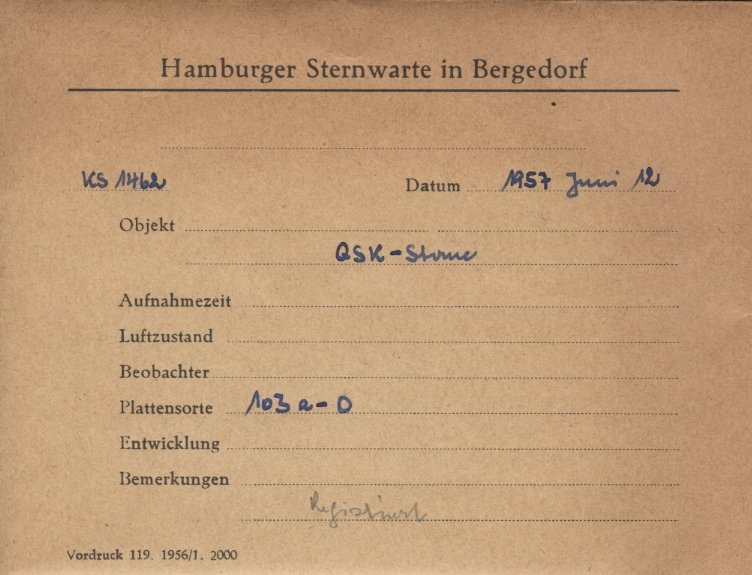 Hamburger Sternwarte in Bergedorf
KS 1462 Datum 1957 Juni 12
Objekt
QSK-Sterne
Aufnahmezeit
Luftzustand
Beobachter
Plattensorte 103 a-O
Entwicklung
Bemerkungen
Registriert
Vordruck 119. 1956/1. 2000